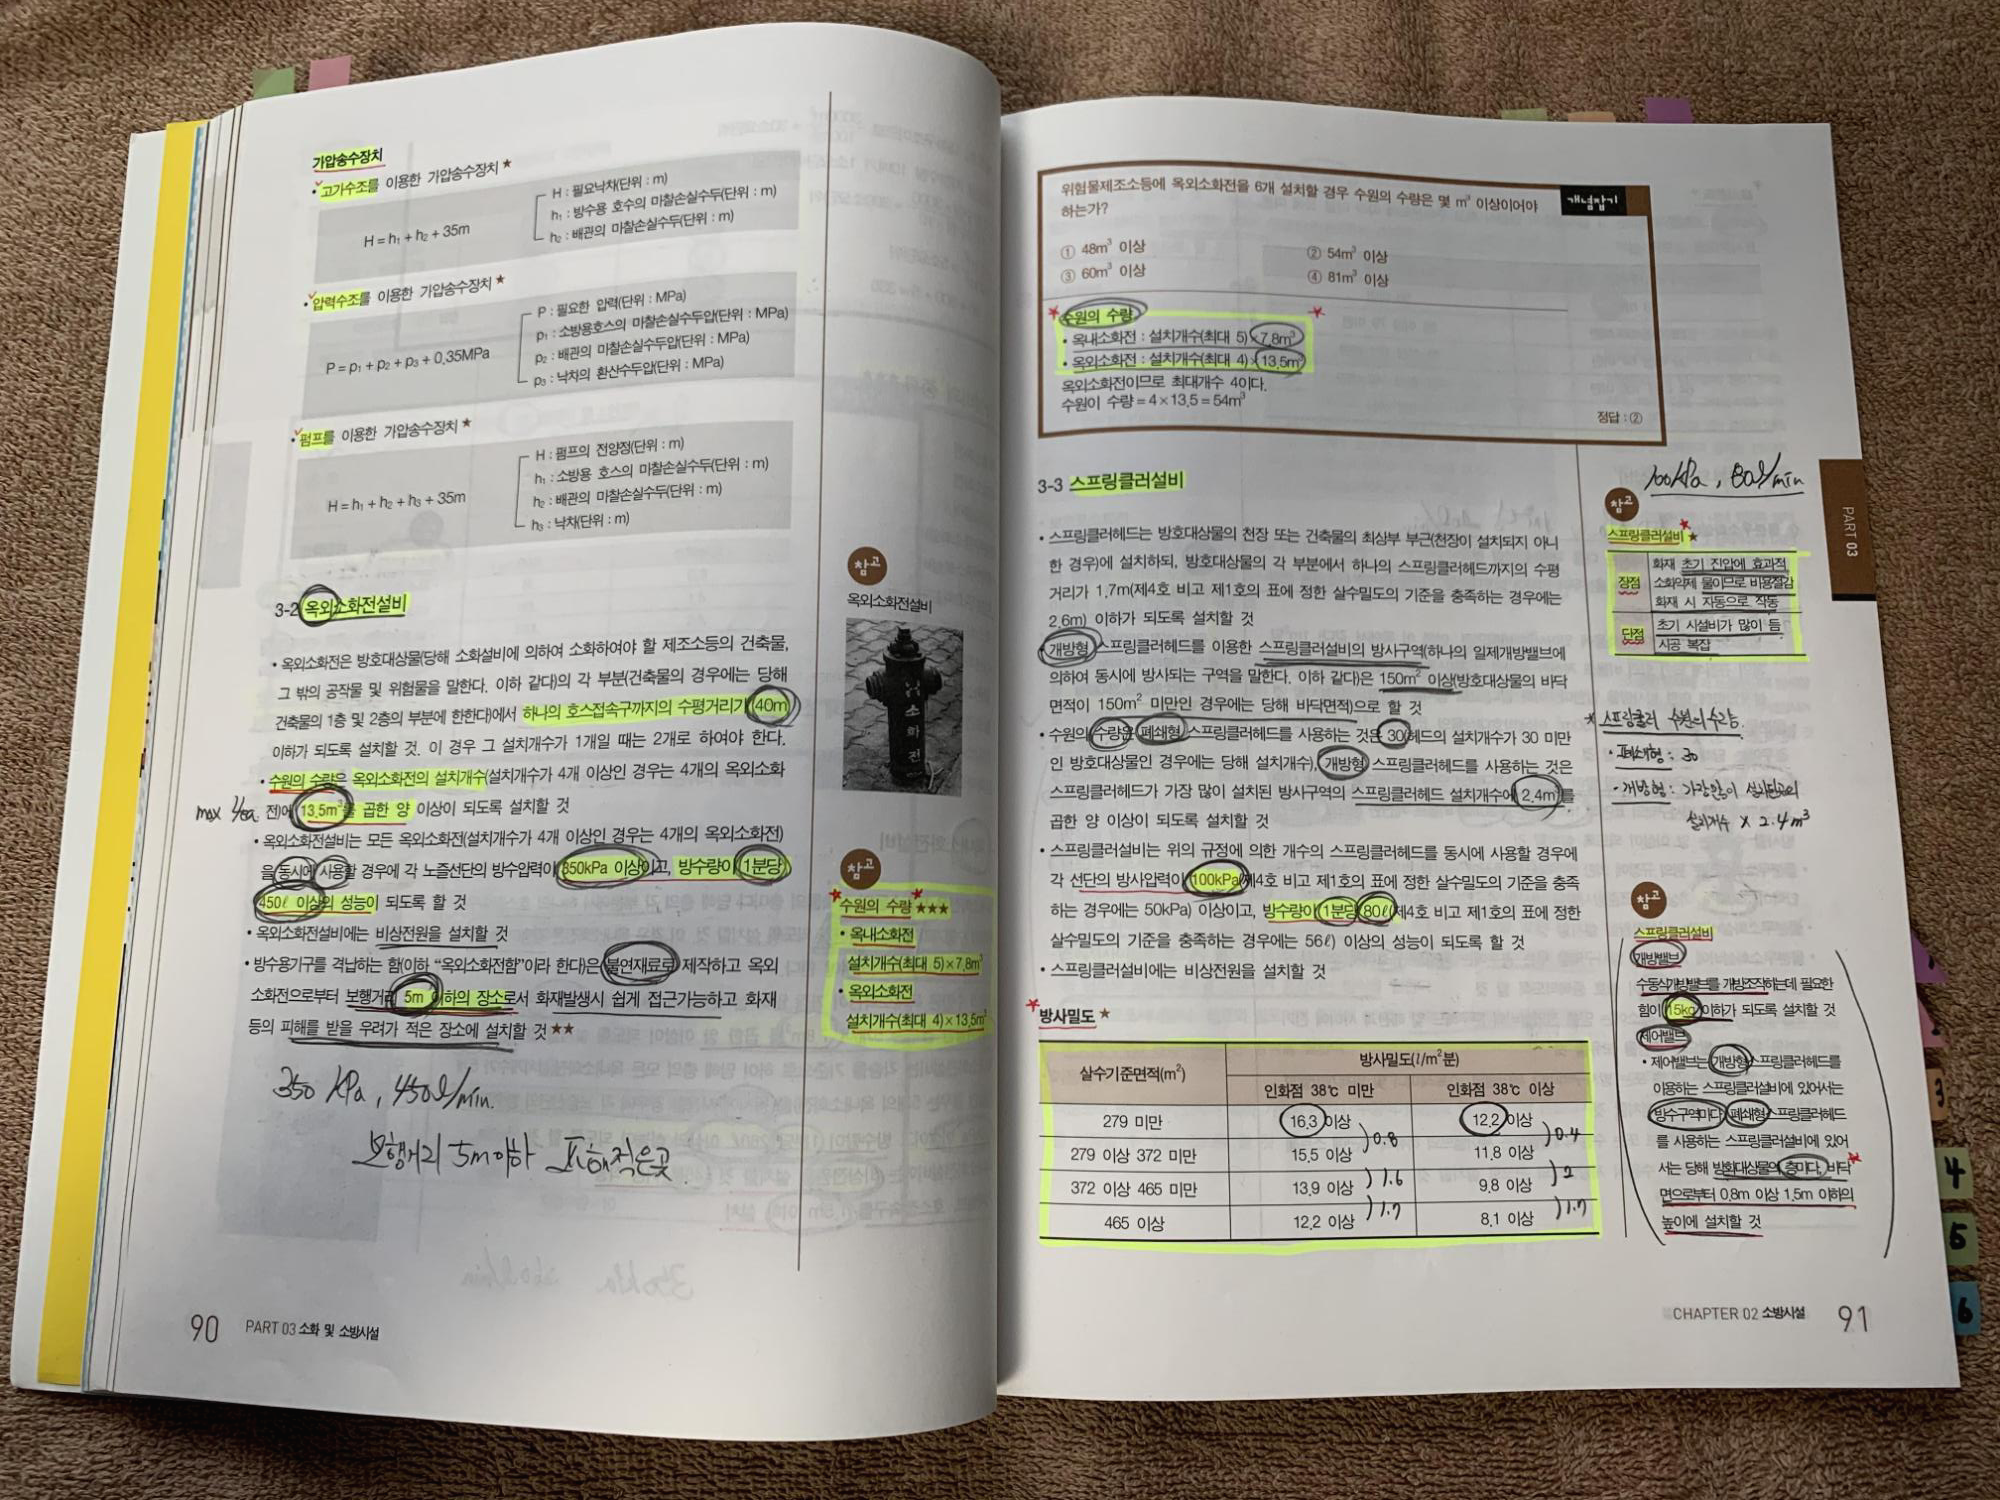 가압송수장치
• 고가수조를 이용한 가압송수장치 ★
H = h₁ + h₂ + 35m
H : 필요낙차(단위 : m)
h₁ : 방수용 호수의 마찰손실수두(단위 : m)
h₂ : 배관의 마찰손실수두(단위 : m)
• 압력수조를 이용한 가압송수장치 ★
P = p₁ + p₂ + p₃ + 0.35MPa
P : 필요한 압력(단위 : MPa)
p₁ : 소방용호스의 마찰손실수두압(단위 : MPa)
p₂ : 배관의 마찰손실수두압(단위 : MPa)
p₃ : 낙차의 환산수두압(단위 : MPa)
• 펌프를 이용한 가압송수장치 ★
H = h₁ + h₂ + h₃ + 35m
H : 펌프의 전양정(단위 : m)
h₁ : 소방용 호스의 마찰손실수두(단위 : m)
h₂ : 배관의 마찰손실수두(단위 : m)
h₃ : 낙차(단위 : m)
3-2 옥외소화전설비
• 옥외소화전은 방호대상물(당해 소화설비에 의하여 소화하여야 할 제조소등의 건축물,
그 밖의 공작물 및 위험물을 말한다. 이하 같다)의 각 부분(건축물의 경우에는 당해
건축물의 1층 및 2층의 부분에 한한다)에서 하나의 호스접속구까지의 수평거리가 40m
이하가 되도록 설치할 것. 이 경우 그 설치개수가 1개일 때는 2개로 하여야 한다.
• 수원의 수량은 옥외소화전의 설치개수(설치개수가 4개 이상인 경우는 4개의 옥외소화
max 4ea 전)에 13.5m³를 곱한 양 이상이 되도록 설치할 것
• 옥외소화전설비는 모든 옥외소화전(설치개수가 4개 이상인 경우는 4개의 옥외소화전)
을 동시에 사용할 경우에 각 노즐선단의 방수압력이 350kPa 이상이고, 방수량이 1분당
450ℓ 이상의 성능이 되도록 할 것
• 옥외소화전설비에는 비상전원을 설치할 것
• 방수용기구를 격납하는 함(이하 "옥외소화전함"이라 한다)은 불연재료로 제작하고 옥외
소화전으로부터 보행거리 5m 이하의 장소로서 화재발생시 쉽게 접근가능하고 화재
등의 피해를 받을 우려가 적은 장소에 설치할 것 ★★
350 kPa, 450ℓ/min.
보행거리 5m이하 피해적은곳
참고
옥외소화전설비
소
화
전
참고
수원의 수량 ★★★
• 옥내소화전
설치개수(최대 5)×7.8m³
• 옥외소화전
설치개수(최대 4)×13.5m³
90 PART 03 소화 및 소방시설
위험물제조소등에 옥외소화전을 6개 설치할 경우 수원의 수량은 몇 m³ 이상이어야
하는가?
개념잡기
① 48m³ 이상
② 54m³ 이상
③ 60m³ 이상
④ 81m³ 이상
수원의 수량
• 옥내소화전 : 설치개수(최대 5)×7.8m³
• 옥외소화전 : 설치개수(최대 4)×13.5m³
옥외소화전이므로 최대개수 4이다.
수원이 수량 = 4×13.5 = 54m³
정답 : ②
3-3 스프링클러설비
• 스프링클러헤드는 방호대상물의 천장 또는 건축물의 최상부 부근(천장이 설치되지 아니
한 경우)에 설치하되, 방호대상물의 각 부분에서 하나의 스프링클러헤드까지의 수평
거리가 1.7m(제4호 비고 제1호의 표에 정한 살수밀도의 기준을 충족하는 경우에는
2.6m) 이하가 되도록 설치할 것
개방형 스프링클러헤드를 이용한 스프링클러설비의 방사구역(하나의 일제개방밸브에
의하여 동시에 방사되는 구역을 말한다. 이하 같다)은 150m² 이상(방호대상물의 바닥
면적이 150m² 미만인 경우에는 당해 바닥면적)으로 할 것
• 수원의 수량은 폐쇄형 스프링클러헤드를 사용하는 것은 30(헤드의 설치개수가 30 미만
인 방호대상물인 경우에는 당해 설치개수), 개방형 스프링클러헤드를 사용하는 것은
스프링클러헤드가 가장 많이 설치된 방사구역의 스프링클러헤드 설치개수에 2.4m³를
곱한 양 이상이 되도록 설치할 것
• 스프링클러설비는 위의 규정에 의한 개수의 스프링클러헤드를 동시에 사용할 경우에
각 선단의 방사압력이 100kPa(제4호 비고 제1호의 표에 정한 살수밀도의 기준을 충족
하는 경우에는 50kPa) 이상이고, 방수량이 1분당 80ℓ(제4호 비고 제1호의 표에 정한
살수밀도의 기준을 충족하는 경우에는 56ℓ) 이상의 성능이 되도록 할 것
• 스프링클러설비에는 비상전원을 설치할 것
방사밀도 ★
살수기준면적(m²) 방사밀도(ℓ/m²분)
인화점 38℃ 미만 인화점 38℃ 이상
279 미만 16.3 이상 12.2 이상
0.8 0.4
279 이상 372 미만 15.5 이상 11.8 이상
1.6 2
372 이상 465 미만 13.9 이상 9.8 이상
1.7 1.7
465 이상 12.2 이상 8.1 이상
100kPa, 80ℓ/min
참고
스프링클러설비 ★
장점
화재 초기 진압에 효과적
소화약제 물이므로 비용절감
화재 시 자동으로 작동
단점
초기 시설비가 많이 듬
시공 복잡
* 스프링클러 수원의수량.
• 폐쇄형 : 30
• 개방형 : 가장많이 설치된곳의
설치개수 × 2.4m³
참고
스프링클러설비
개방밸브
수동식개방밸브를 개방조작하는데 필요한
힘이 15kg 이하가 되도록 설치할 것
제어밸브
• 제어밸브는 개방형 스프링클러헤드를
이용하는 스프링클러설비에 있어서는
방수구역마다 폐쇄형 스프링클러헤드
를 사용하는 스프링클러설비에 있어
서는 당해 방화대상물의 층마다, 바닥
면으로부터 0.8m 이상 1.5m 이하의
높이에 설치할 것
PART 03
3
4
5
6
CHAPTER 02 소방시설 91